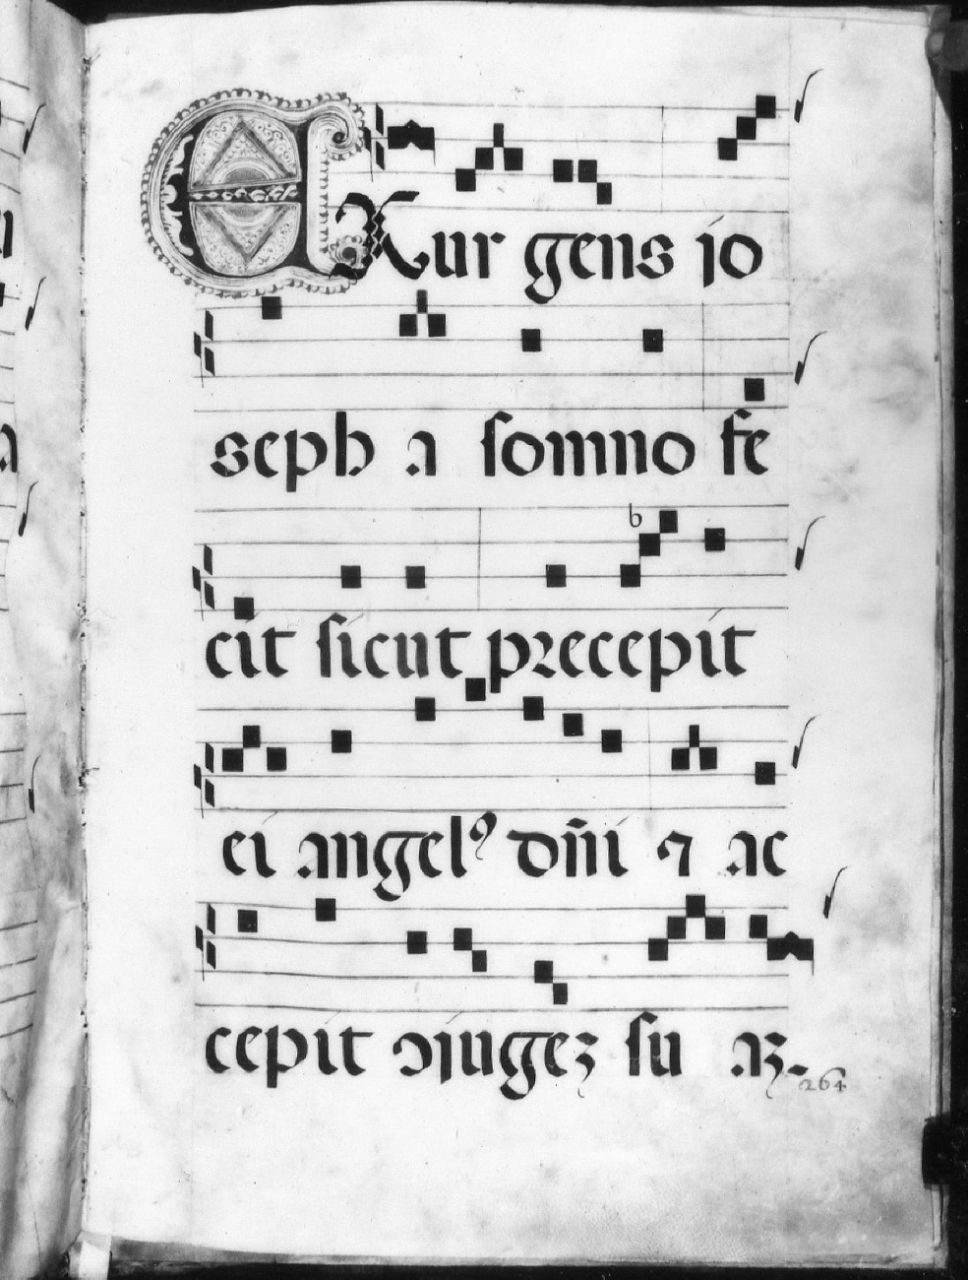 EXur gens io
seph a somno fe
cit sicut precepit
b
ei angelꝰ dñi ⁊ ac
cepit ↄiugeꝫ su aꝫ.
264